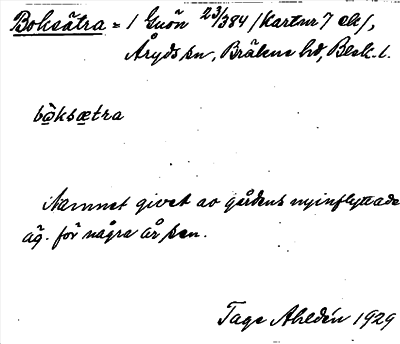 Boksätra = 1 Guön 23/384 /Kartnr 7 ek/,
Åryds sn, Bräkne hd, Blek. l.
bòksætra
Namnet givet av gårdens nyinflyttade
äg. för några år sen.
Tage Ahldén 1929